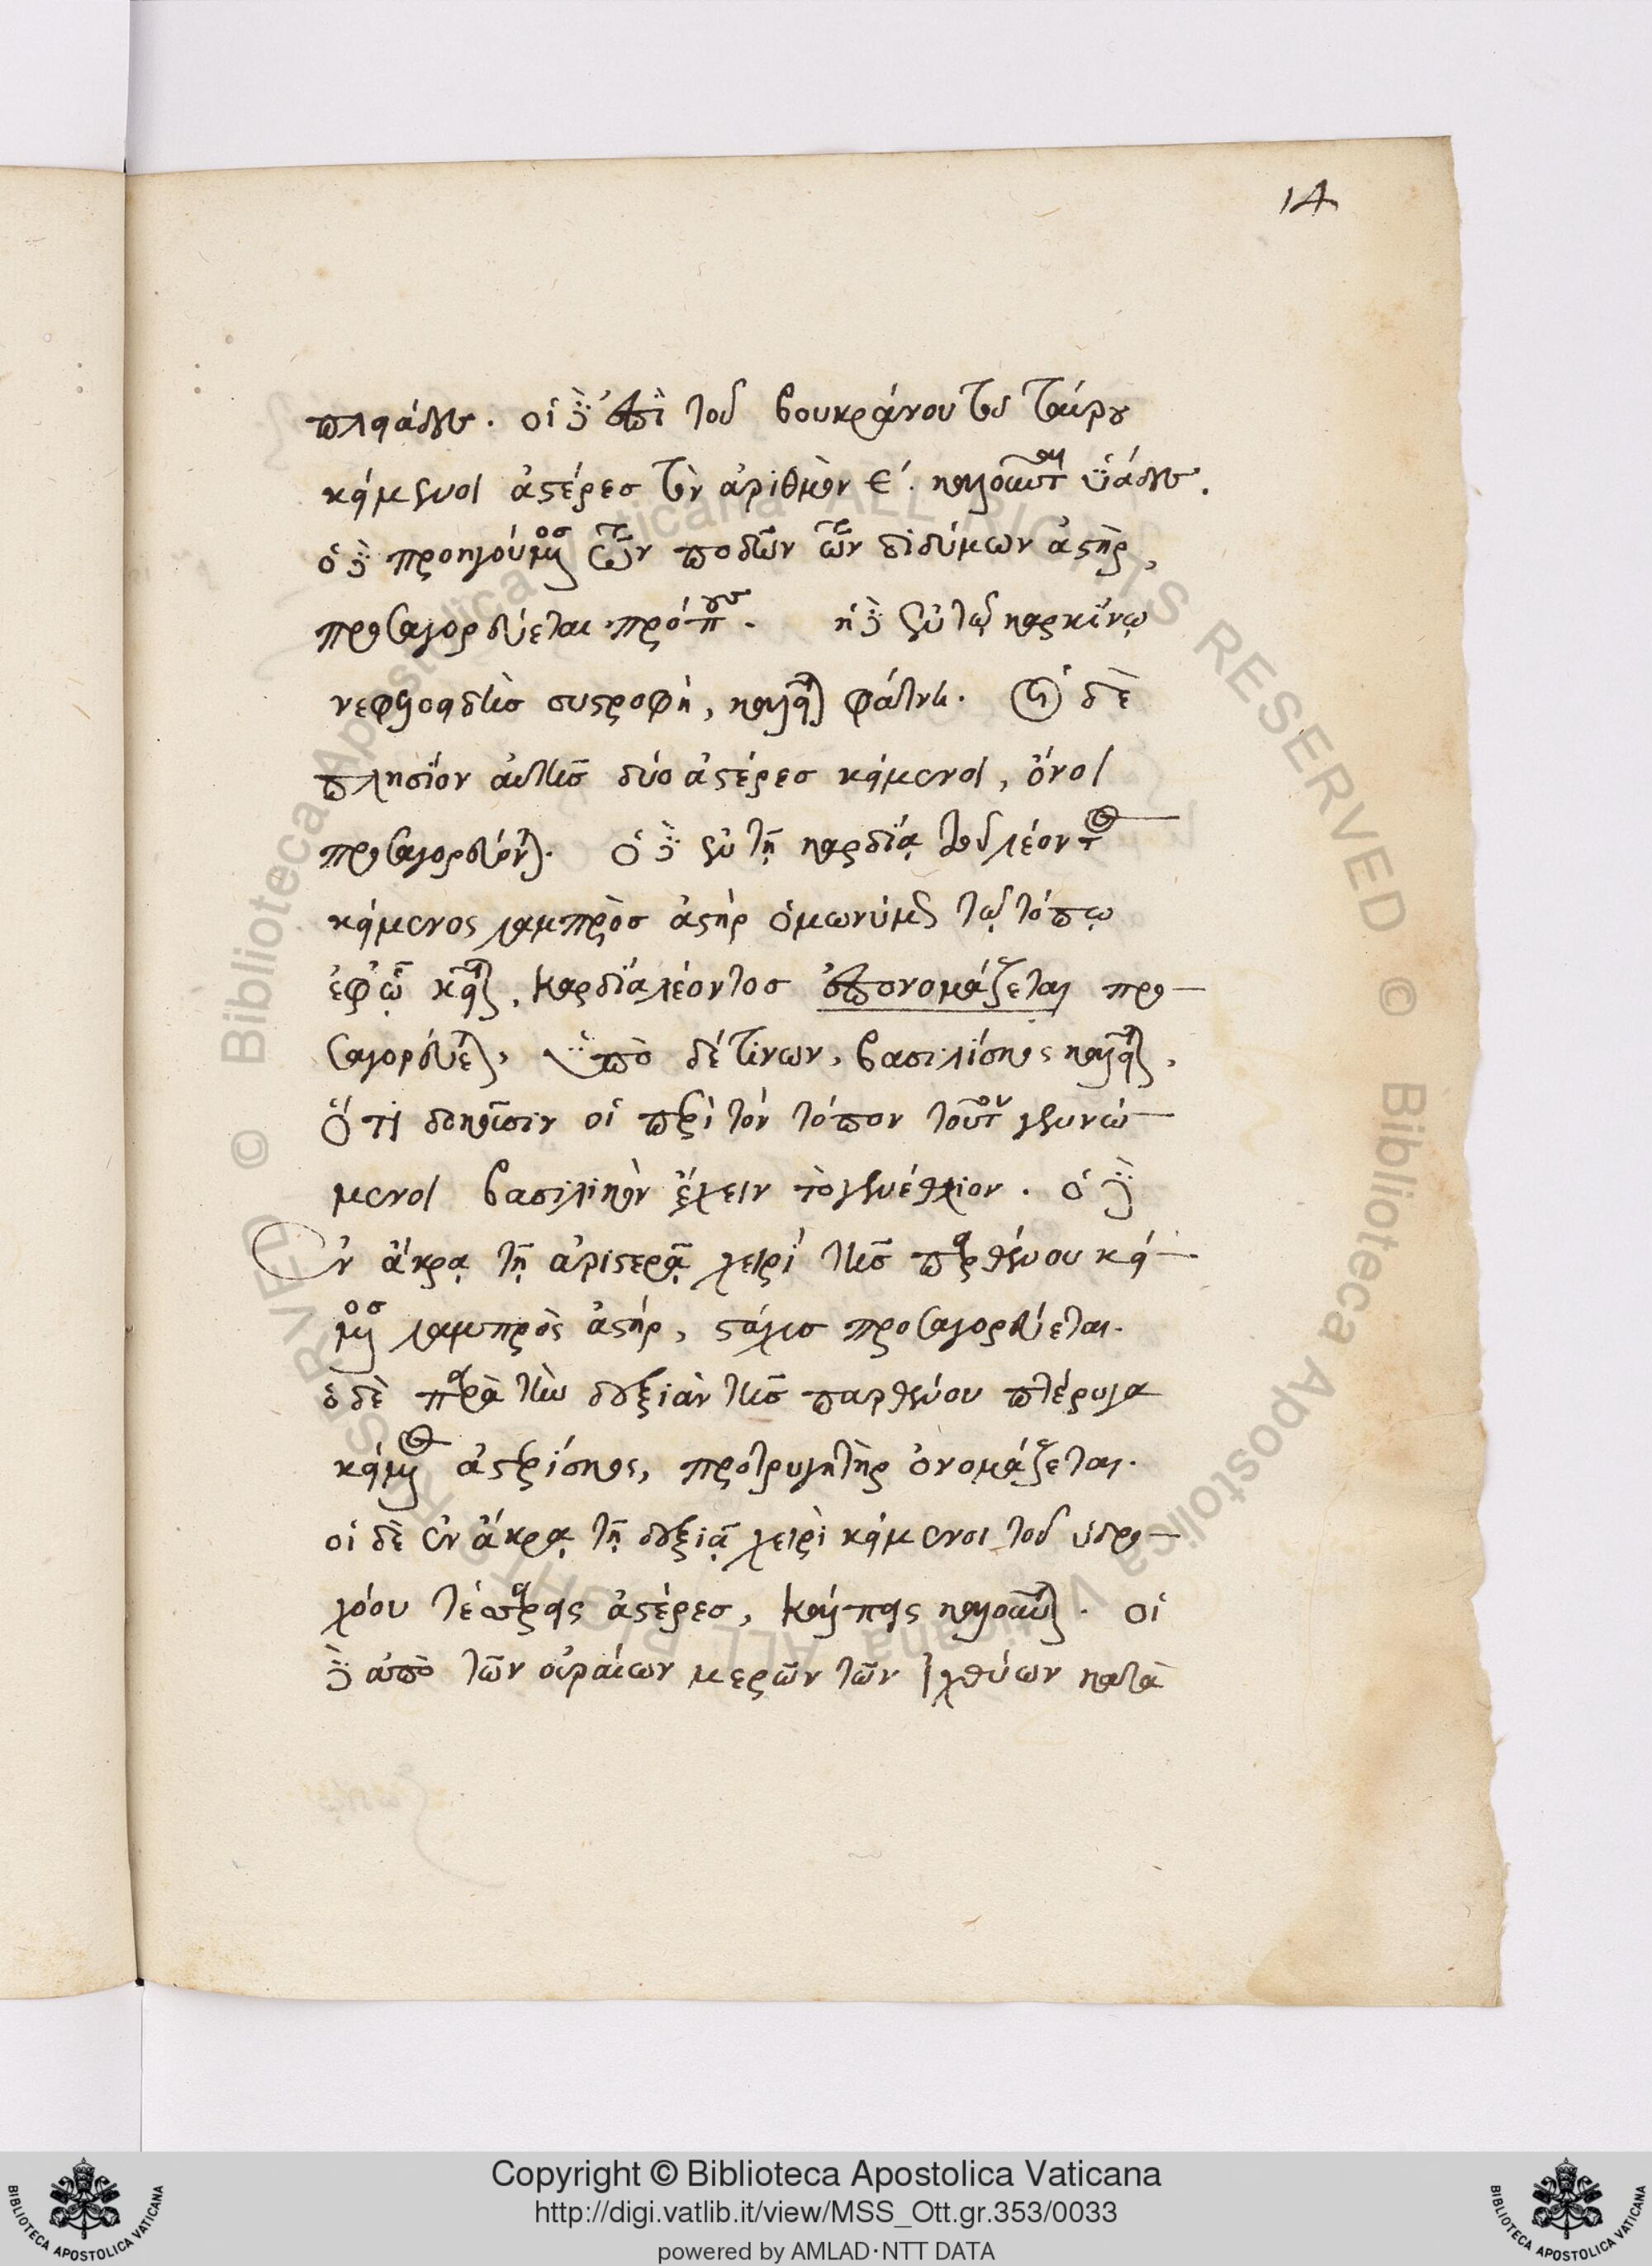 14
πλειάδες. οἱ δὲ ἐπὶ τοῦ βουκράνου τοῦ ταύρου
κείμενοι ἀστέρες τὸν ἀριθμὸν ε΄. καλοῦνται ὑάδες.
ὁ δὲ προηγούμενος τῶν ποδῶν τῶν διδύμων ἀστὴρ,
προσαγορεύεται πρόπους. ἡ δὲ ἐν τῷ καρκίνῳ
νεφελοειδὴς συστροφὴ, καλεῖται φάτνη. οἱ δὲ
πλησίον αὐτῆς δύο ἀστέρες κείμενοι, ὄνοι
προσαγορεύονται. ὁ δὲ ἐν τῇ καρδίᾳ τοῦ λέοντος
κείμενος λαμπρὸς ἀστὴρ ὁμωνύμως τῷ τόπῳ
ἐφ' ᾧ κεῖται, καρδία λέοντος ἐπονομάζεται προ-
σαγορεύεται, ὑπὸ δέ τινων, βασιλίσκος καλεῖται,
ὅτι δοκοῦσιν οἱ περὶ τὸν τόπον τοῦτον γεννώ-
μενοι βασιλικὸν ἔχειν τὸ γενέθλιον. ὁ δὲ
ἐν ἄκρᾳ τῇ ἀριστερᾷ χειρὶ τῆς παρθένου κεί-
μενος λαμπρὸς ἀστήρ, στάχυς προσαγορεύεται.
ὁ δὲ παρὰ τὴν δεξιὰν τῆς παρθένου πτέρυγα
κείμενος ἀστερίσκος, προτρυγητὴρ ὀνομάζεται.
οἱ δὲ ἐν ἄκρᾳ τῇ δεξιᾷ χειρὶ κείμενοι τοῦ ὑδρο-
χόου τέσσαρες ἀστέρες, κάλπις καλοῦνται. οἱ
δὲ ἀπὸ τῶν οὐραίων μερῶν τῶν ἰχθύων κατὰ
© Biblioteca Apostolica Vaticana ALL RIGHTS RESERVED © Biblioteca Apostolica Vaticana ALL RIGHTS RESERVED
Copyright © Biblioteca Apostolica Vaticana
http://digi.vatlib.it/view/MSS_Ott.gr.353/0033
powered by AMLAD·NTT DATA
BIBLIOTECA APOSTOLICA VATICANA
BIBLIOTECA APOSTOLICA VATICANA